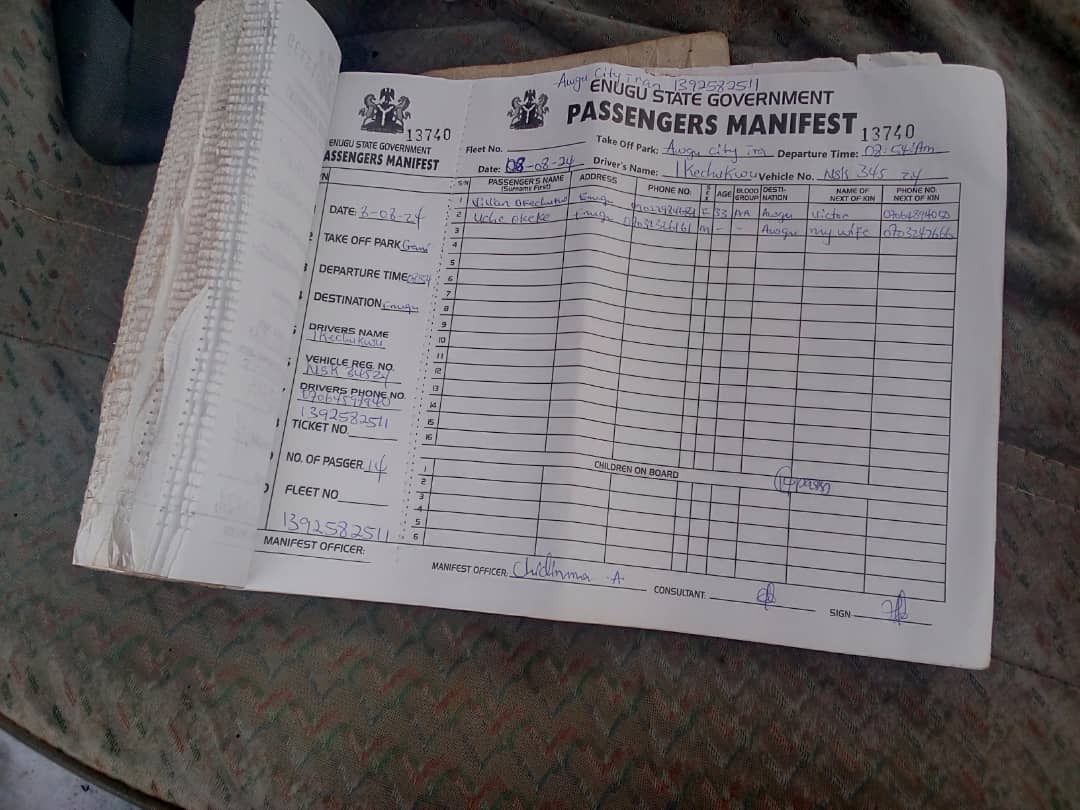 Awgu City tra 1392582511
ENUGU STATE GOVERNMENT
PASSENGERS MANIFEST
13740
Fleet No.
Take Off Park: Awgu City tra Departure Time: 08:54Am
Date: 08-08-24 Driver's Name: Ikechukwu Vehicle No. NSK 345 24
S/N PASSENGER'S NAME (Surname First) ADDRESS PHONE NO. SEX AGE BLOOD GROUP DESTI-NATION NAME OF NEXT OF KIN PHONE NO. NEXT OF KIN
1 Okechukwu Enugu F 53 AA Awgu Victor
2 Uche Okeke Enugu m - - Awgu my wife
3
4
5
6
7
8
9
10
11
12
13
14
15
16
CHILDREN ON BOARD
1
2
3
4
5
6
MANIFEST OFFICER: Chidinma .A. CONSULTANT: SIGN
13740
ENUGU STATE GOVERNMENT
ASSENGERS MANIFEST
N
DATE: 8-08-24
TAKE OFF PARK
DEPARTURE TIME 08:54
DESTINATION Enugu
DRIVERS NAME
Ikechukwu
VEHICLE REG. NO.
NSK 34524
DRIVERS PHONE NO.
1392582511
TICKET NO.
NO. OF PASGER. 14
FLEET NO
1392582511
MANIFEST OFFICER: